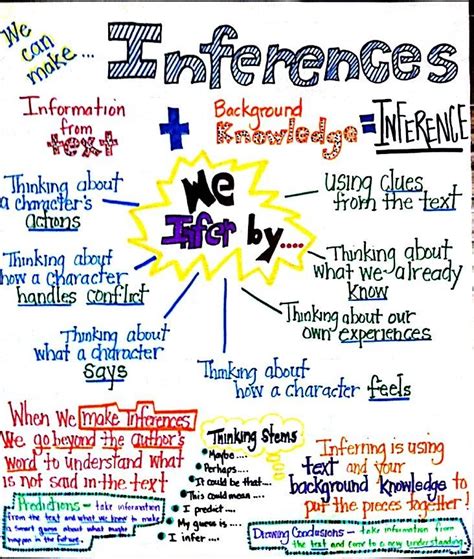 We can make...
Inferences
Information from text
+
Background Knowledge
=
INFERENCE
We Infer by....
Thinking about
a character's
actions
Thinking about
how a character
handles conflict
Thinking about
what a character
says
Thinking about
how a character feels
Thinking about our
own experiences
Thinking about
what we already
know
Using clues
from the text
When We make Inferences
We go beyond the author's
word to understand what
is not said in the text
Predictions - take information
from the text and what we know to make
a smart guess about what might
happen in the future.
Thinking Stems
• Maybe....
• Perhaps....
• It could be that....
• This could mean ....
• I predict ....
• My guess is ....
• I infer ....
Inferring is using
text and your
background knowledge to
put the pieces together!
Drawing Conclusions - take information from
the text and come to a new understanding.